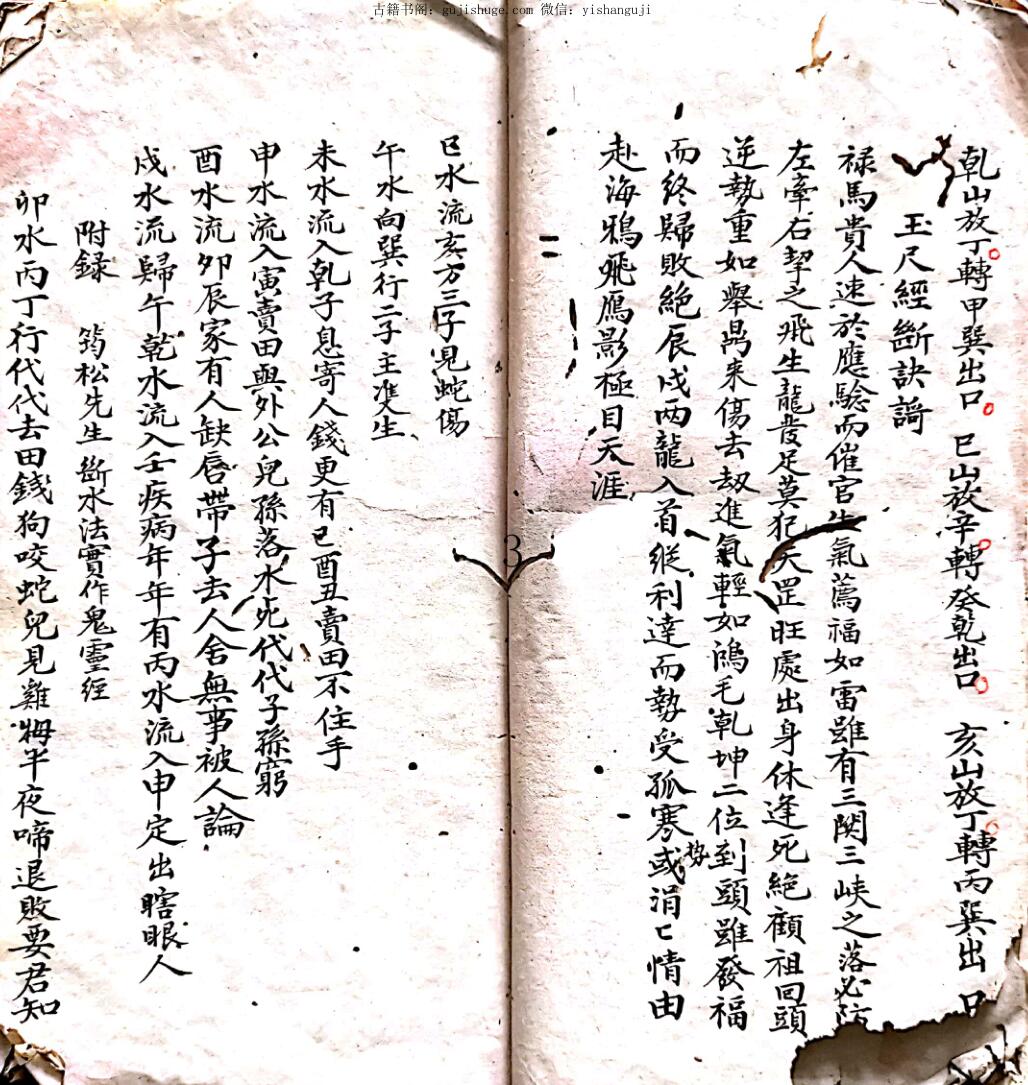 古籍书阁：gujishuge.com 微信：yishanguji
乹山放丁轉甲巽出口 巳山放辛轉癸乾出口 亥山放丁轉丙巽出口
玉尺經斷訣謌
禄馬貴人速於應驗而催官生氣薦福如雷雖有三関三峡之落必防
左牽右挈之飛生龍發足莫犯天罡旺處出身休逢死絶顧祖回頭
逆勢重如舉鼎来傷去刼進氣輕如鴻毛乹坤二位到頭雖發福
而终歸敗絶辰戌两龍入首縱利達而勢受孤寒或涓〻情由
势
赴海鴉飛鳫影極目天涯
3
巳水流亥方三子見蛇傷
午水向巽行二子主双生
未水流入乹子息寄人錢更有巳酉丑賣田不住手
申水流入寅賣田與外公兒孫落水死代代子孫窮
酉水流夘辰家有人缺唇帶子去人舍無事被人論
戌水流歸午乾水流入壬疾病年年有丙水流入申定出瞎眼人
附録 筠松先生斷水法實作鬼靈经
卯水丙丁行代代去田錢狗咬蛇兒見雞啼半夜啼退敗要君知